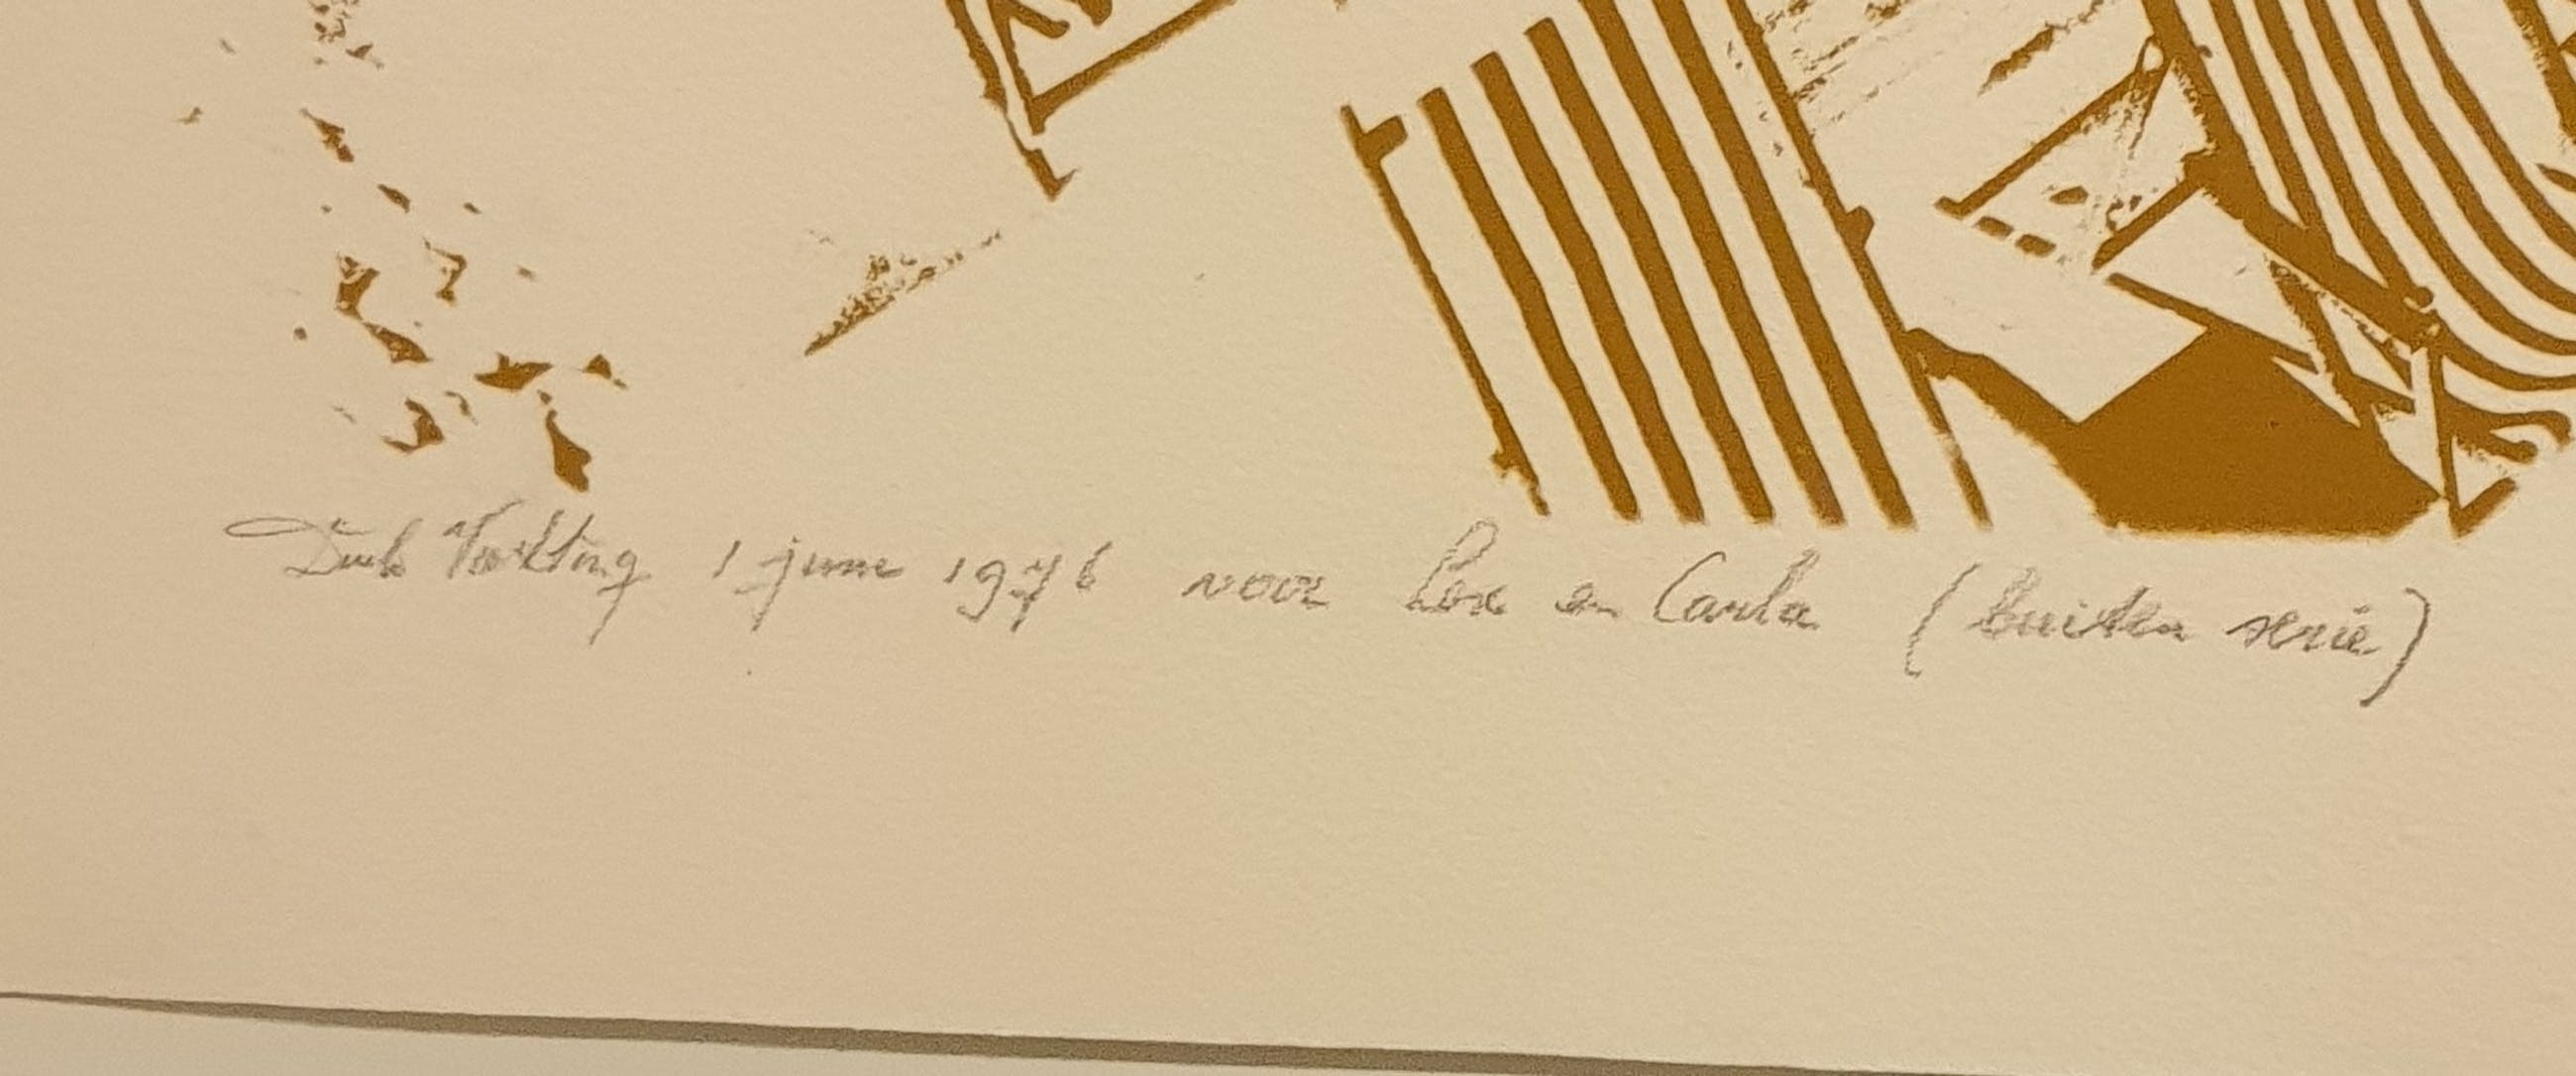 Dirk Volting 1 june 1976 voor Lex en Carla (buiten serie)